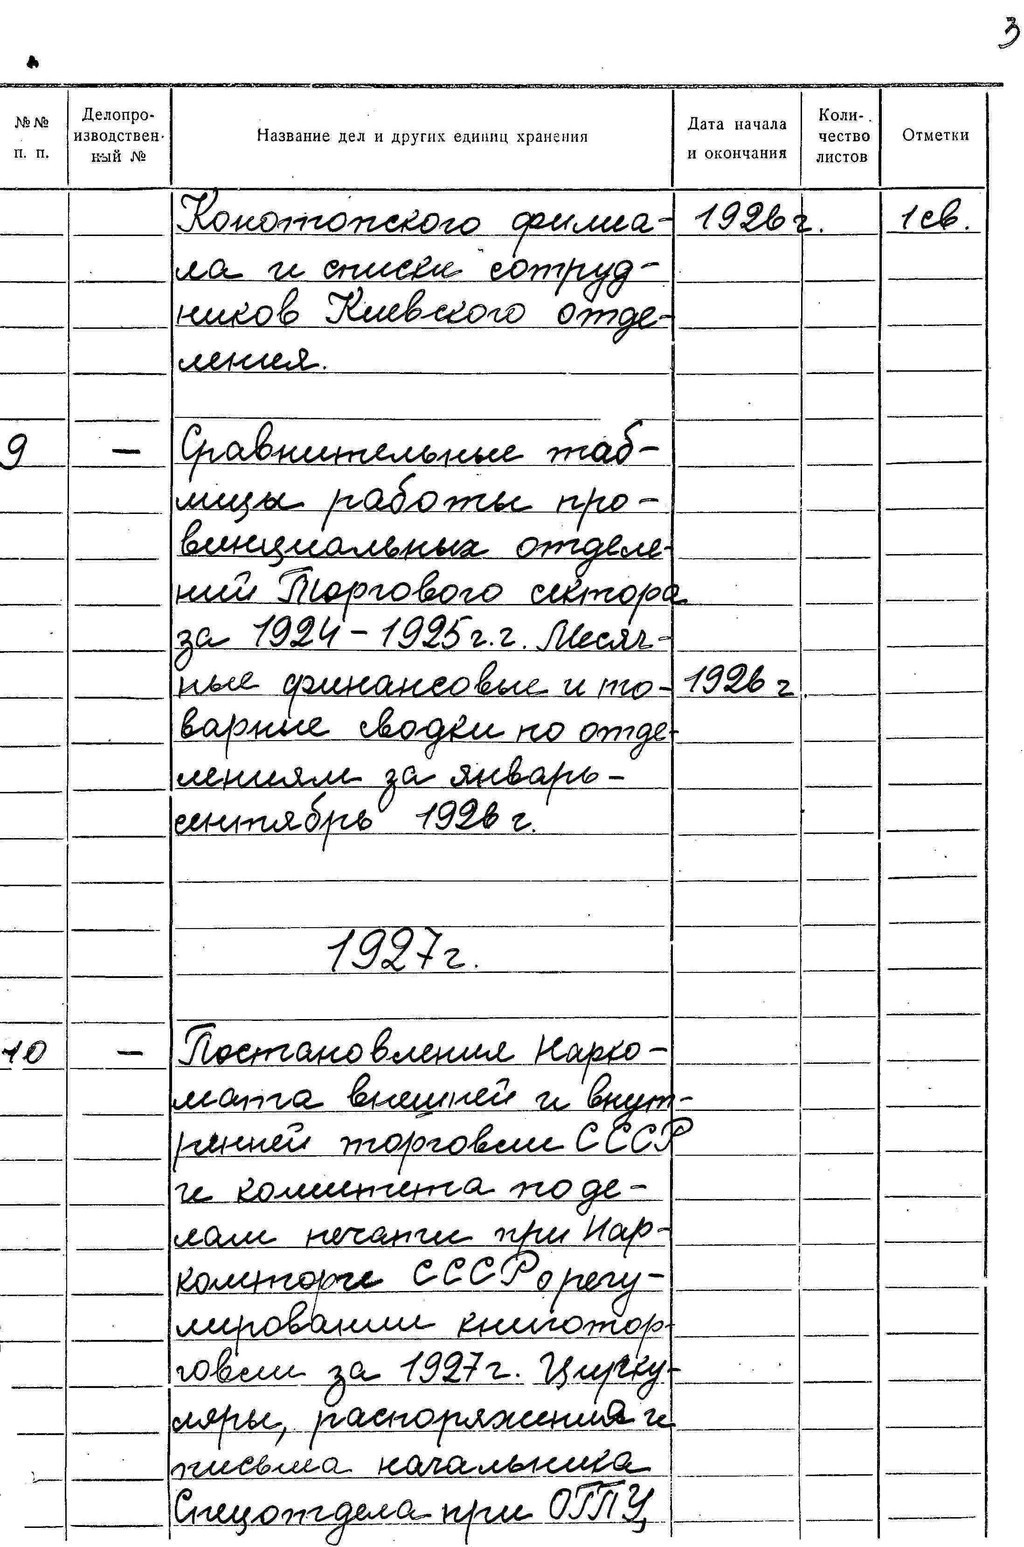 3
№№ п. п.
Делопро-
изводствен-
ный №
Название дел и других единиц хранения
Дата начала
и окончания
Коли-
чество
листов
Отметки
Конотопского филиа- 1926 г. 1 св.
ла и списки сотруд-
ников Киевского отде-
ления.
9 — Сравнительные таб-
лицы работы про-
винциальных отделе-
ний Торгового сектора
за 1924-1925 г.г. Месяч-
ные финансовые и то- 1926 г
варные сводки по отде-
лениям за январь-
сентябрь 1926 г.
1927 г.
10 — Постановления Нарко-
мата внешней и внут-
ренней торговли СССР
и комитета по де-
лам печати при Нар-
комторге СССР о регу-
лировании книготор-
говли за 1927 г. Цирку-
ляры, распоряжения и
письма начальника
Спецотдела при ОГПУ,